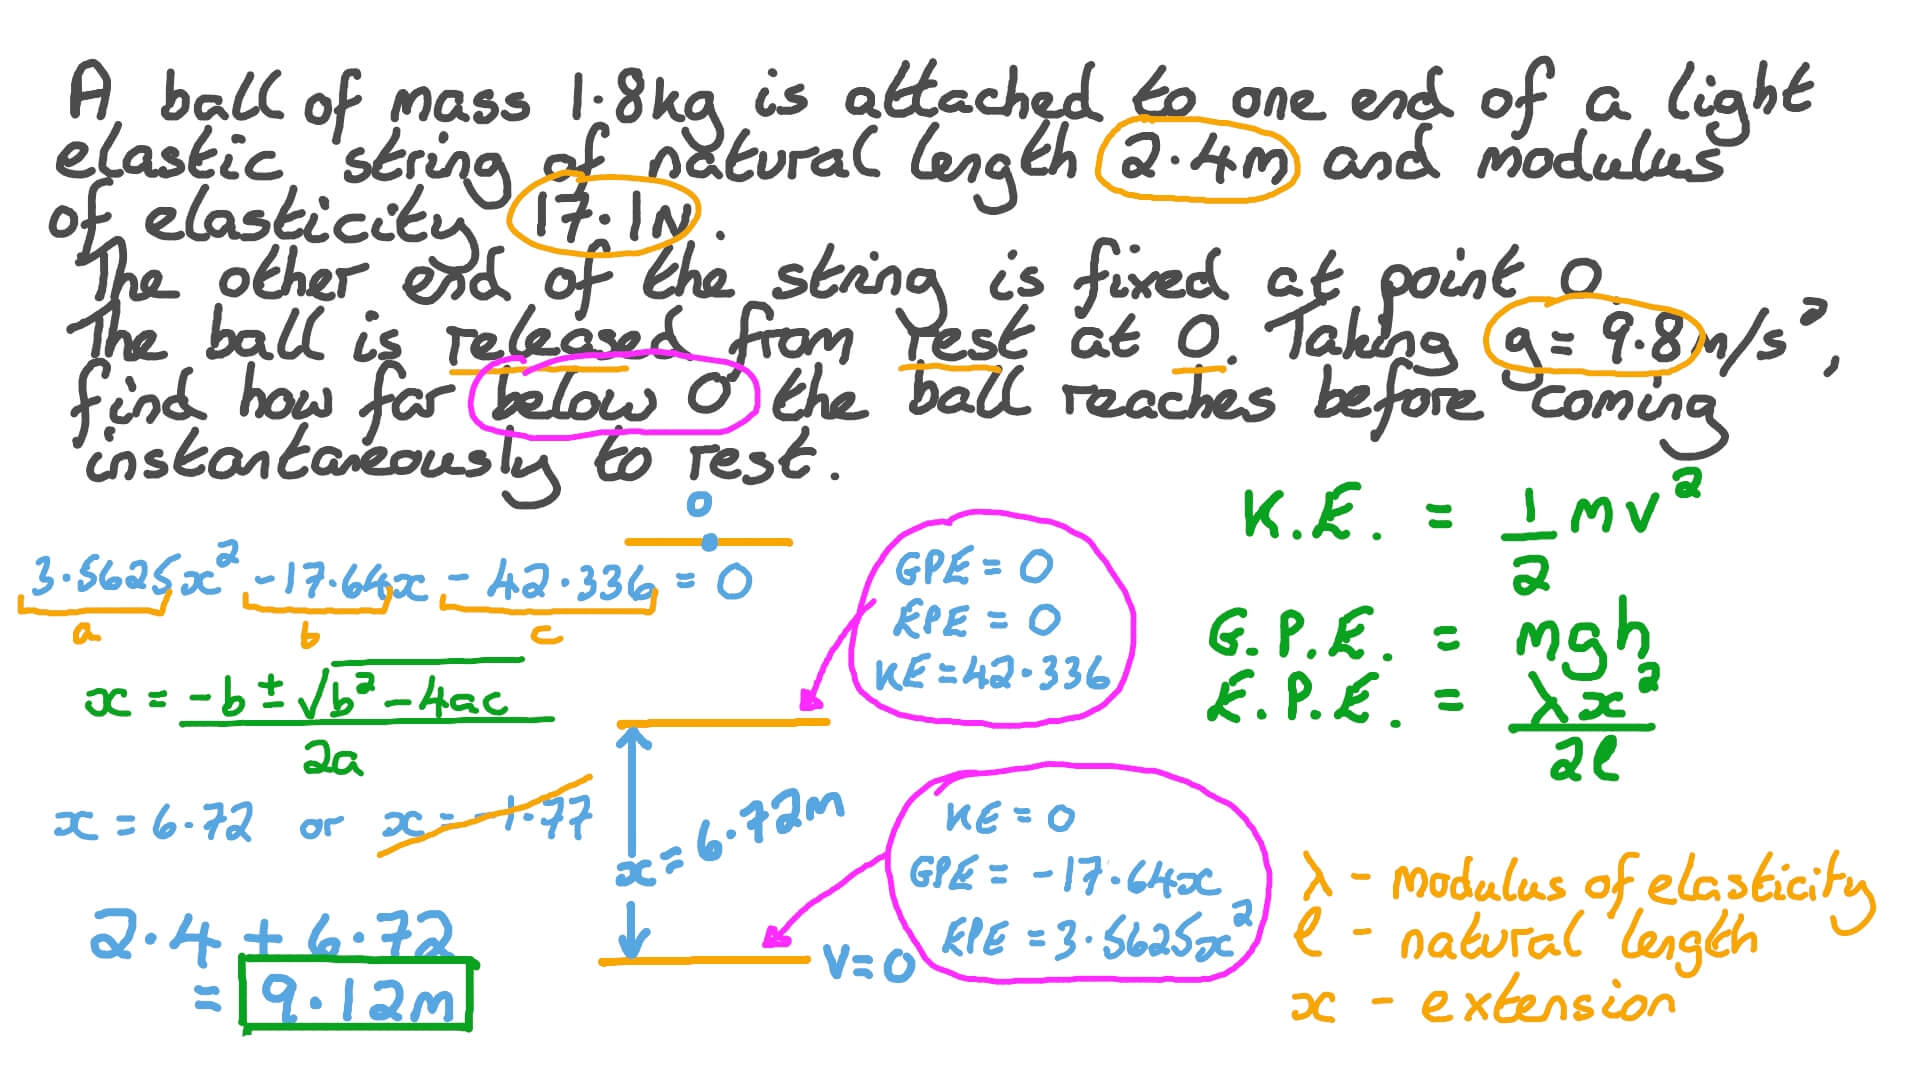 A ball of mass 1.8kg is attached to one end of a light
elastic string of natural length 2.4m and modulus
of elasticity 17.1N.
The other end of the string is fixed at point O.
The ball is released from rest at O. Taking g = 9.8m/s²,
find how far below O the ball reaches before coming
instantaneously to rest.
O
3.5625x² -17.64x - 42.336 = 0
a b c
x = -b ± √b² - 4ac
2a
x = 6.72 or x = -1.77
2.4 + 6.72
= 9.12m
x = 6.72m
GPE = 0
EPE = 0
KE = 42.336
KE = 0
GPE = -17.64x
EPE = 3.5625x²
V = 0
K.E. = 1/2 mv²
G.P.E. = mgh
E.P.E. = λx²/2l
λ - modulus of elasticity
l - natural length
x - extension